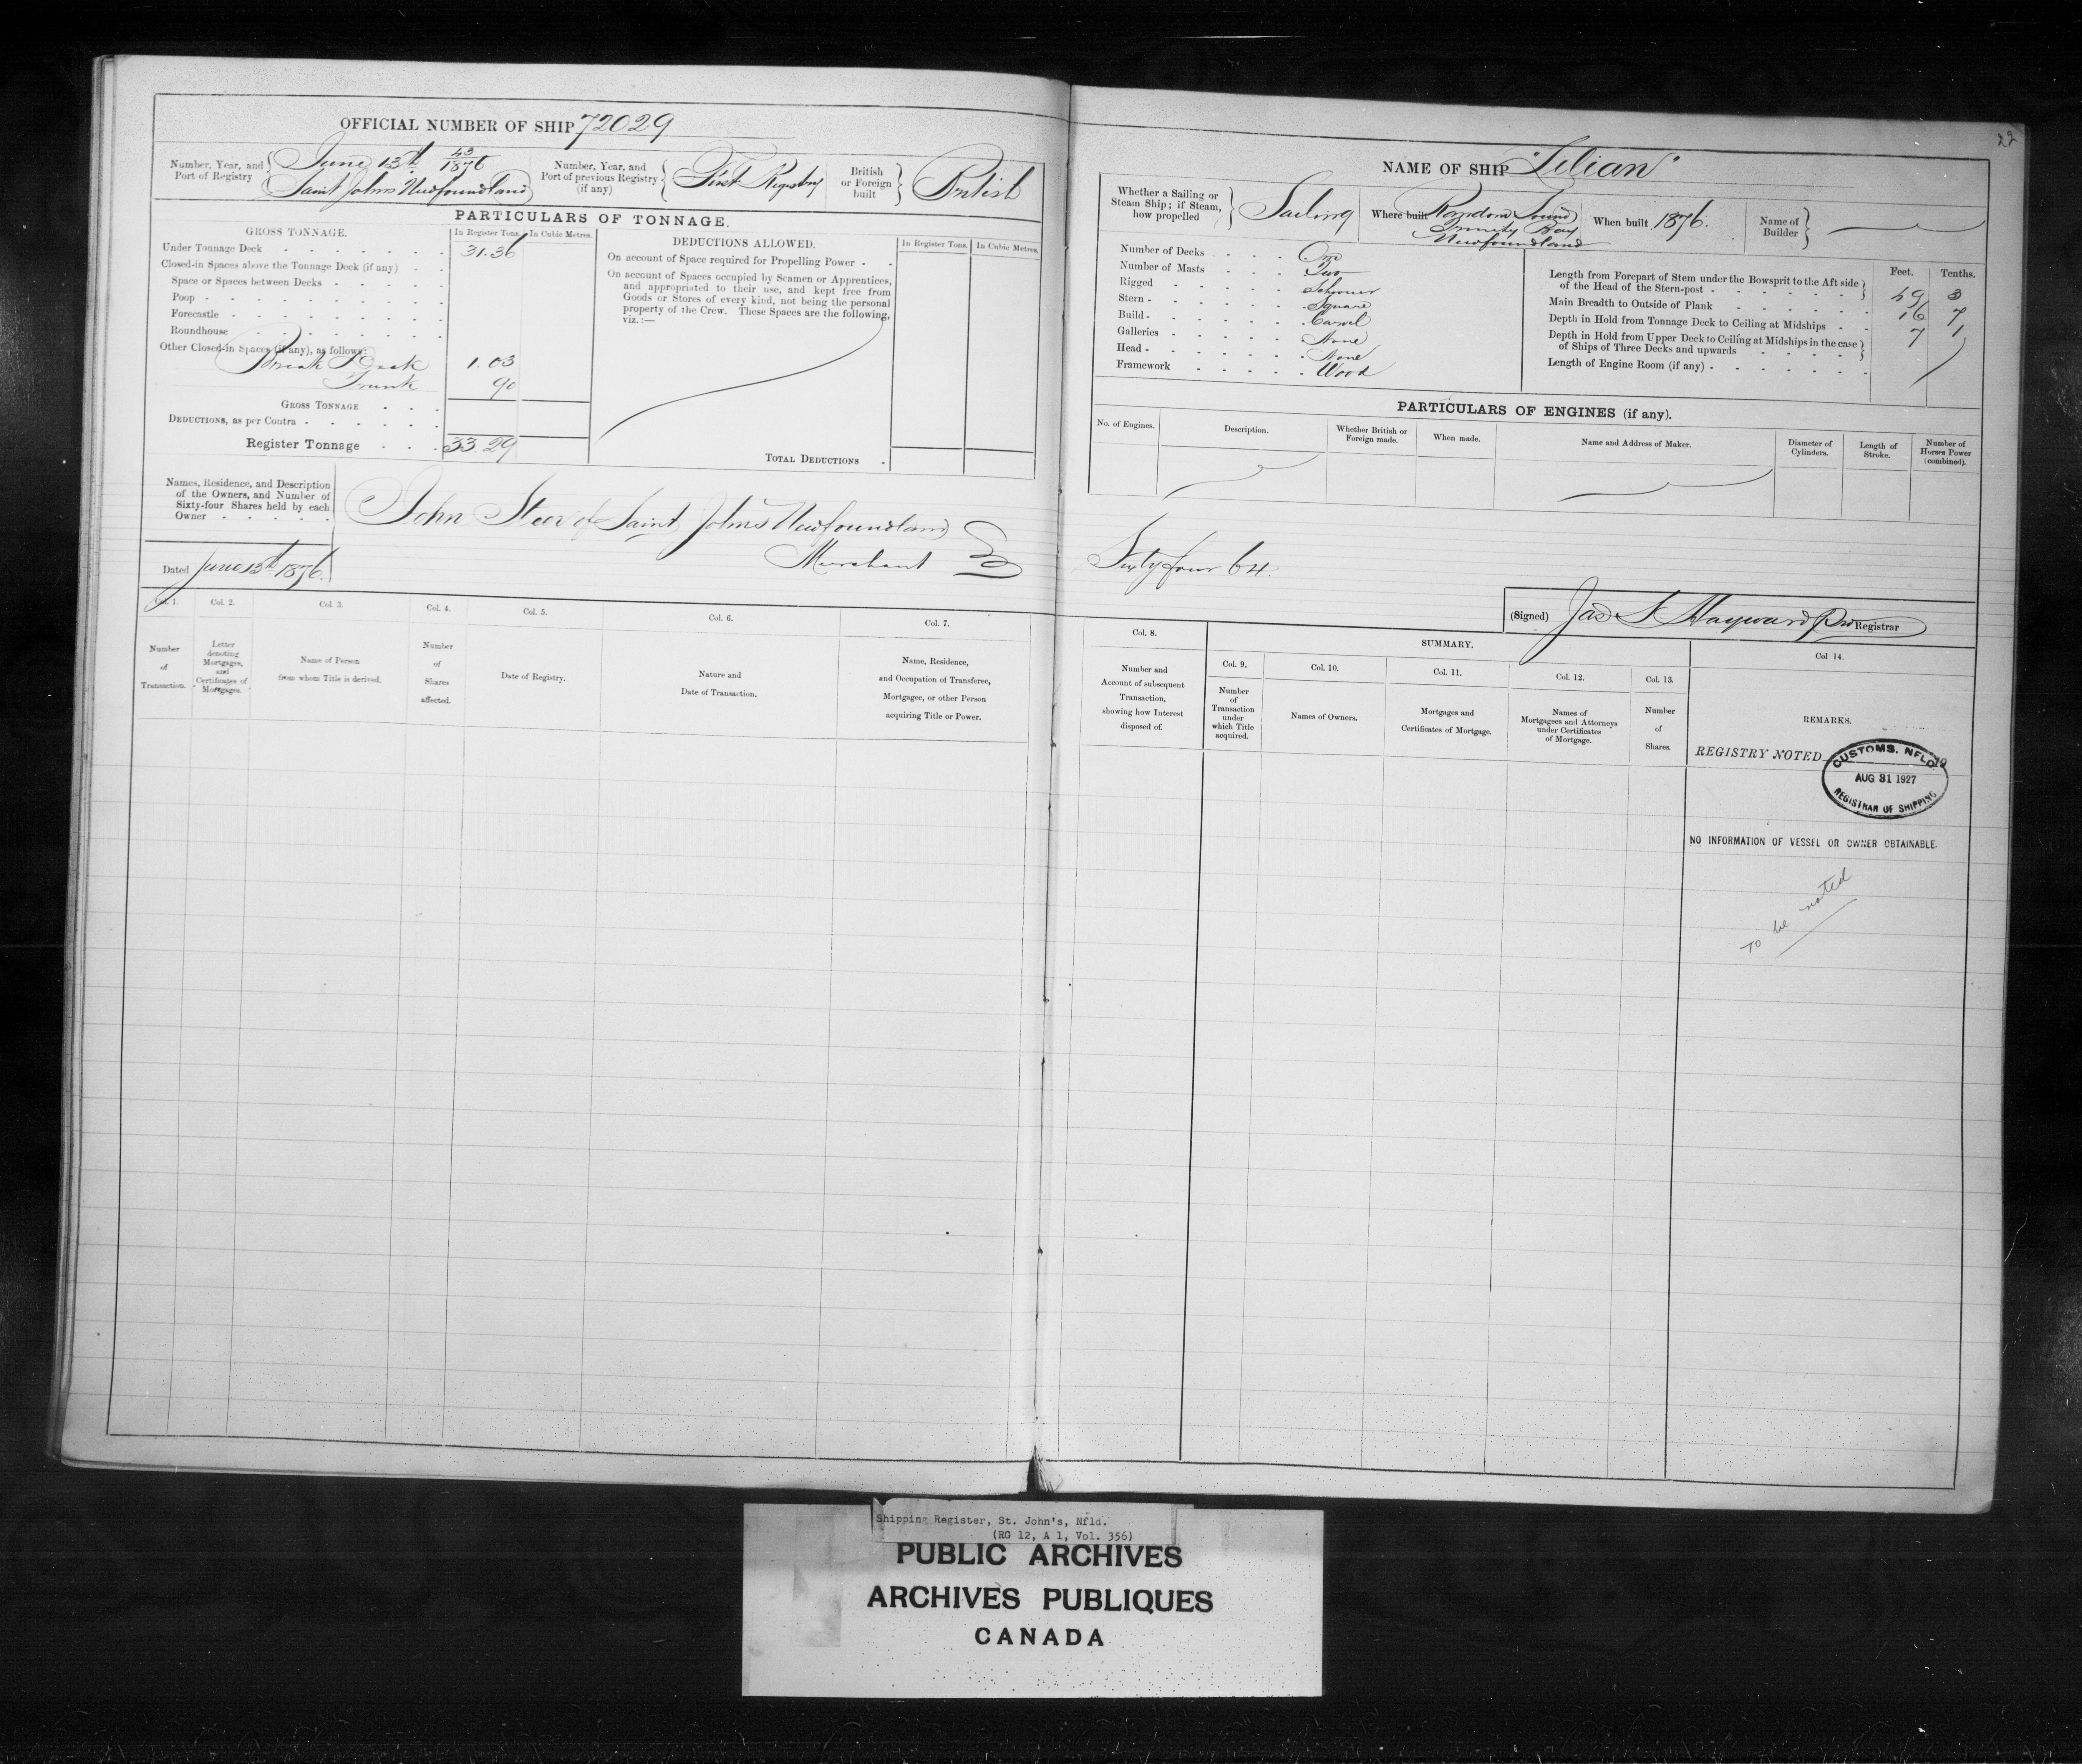 OFFICIAL NUMBER OF SHIP 72029
Number, Year, and Port of Registry { June 13th 43/1876
Saint Johns Newfoundland
Number, Year, and Port of previous Registry (if any) { First Registry
British or Foreign built } British
PARTICULARS OF TONNAGE.
GROSS TONNAGE. In Register Tons. In Cubic Metres.
Under Tonnage Deck 31.36
Closed-in Spaces above the Tonnage Deck (if any)
Space or Spaces between Decks
Poop
Forecastle
Roundhouse
Other Closed-in Spaces (if any), as follows:
Break Deck 1.03
Trunk 90
GROSS TONNAGE
DEDUCTIONS, as per Contra
Register Tonnage 33.29
DEDUCTIONS ALLOWED. In Register Tons. In Cubic Metres.
On account of Space required for Propelling Power
On account of Spaces occupied by Seamen or Apprentices,
and appropriated to their use, and kept free from
Goods or Stores of every kind, not being the personal
property of the Crew. These Spaces are the following,
viz.:—
TOTAL DEDUCTIONS
Names, Residence, and Description
of the Owners, and Number of
Sixty-four Shares held by each
Owner
John Steer of Saint Johns Newfoundland
Merchant
Dated June 13th 1876.
Col. 1. Col. 2. Col. 3. Col. 4. Col. 5. Col. 6. Col. 7.
Number of Transaction.
Letter denoting Mortgages, and Certificates of Mortgages.
Name of Person from whom Title is derived.
Number of Shares affected.
Date of Registry.
Nature and Date of Transaction.
Name, Residence, and Occupation of Transferee, Mortgagee, or other Person acquiring Title or Power.
22
NAME OF SHIP "Lilian"
Whether a Sailing or Steam Ship; if Steam, how propelled } Sailing
Where built Random Sound
Trinity Bay
Newfoundland
When built 1876.
Name of Builder }
Number of Decks One
Number of Masts Two
Rigged Schooner
Stern Square
Build Carvel
Galleries None
Head None
Framework Wood
Feet. Tenths.
Length from Forepart of Stem under the Bowsprit to the Aft side of the Head of the Stern-post 49 3
Main Breadth to Outside of Plank 16 7
Depth in Hold from Tonnage Deck to Ceiling at Midships 7 1
Depth in Hold from Upper Deck to Ceiling at Midships in the case of Ships of Three Decks and upwards
Length of Engine Room (if any)
PARTICULARS OF ENGINES (if any).
No. of Engines. Description. Whether British or Foreign made. When made. Name and Address of Maker. Diameter of Cylinders. Length of Stroke. Number of Horses Power (combined).
Sixty four 64.
(Signed) Jas S Hayward Registrar
Col. 8.
Number and Account of subsequent Transaction, showing how Interest disposed of.
SUMMARY.
Col. 9. Col. 10. Col. 11. Col. 12. Col. 13. Col 14.
Number of Transaction under which Title acquired.
Names of Owners.
Mortgages and Certificates of Mortgage.
Names of Mortgagees and Attorneys under Certificates of Mortgage.
Number of Shares.
REMARKS.
REGISTRY NOTED 19
CUSTOMS. NFLD
AUG 31 1927
REGISTRAR OF SHIPPING
NO INFORMATION OF VESSEL OR OWNER OBTAINABLE.
To be noted
Shipping Register, St. John's, Nfld.
(RG 12, A 1, Vol. 356)
PUBLIC ARCHIVES
ARCHIVES PUBLIQUES
CANADA